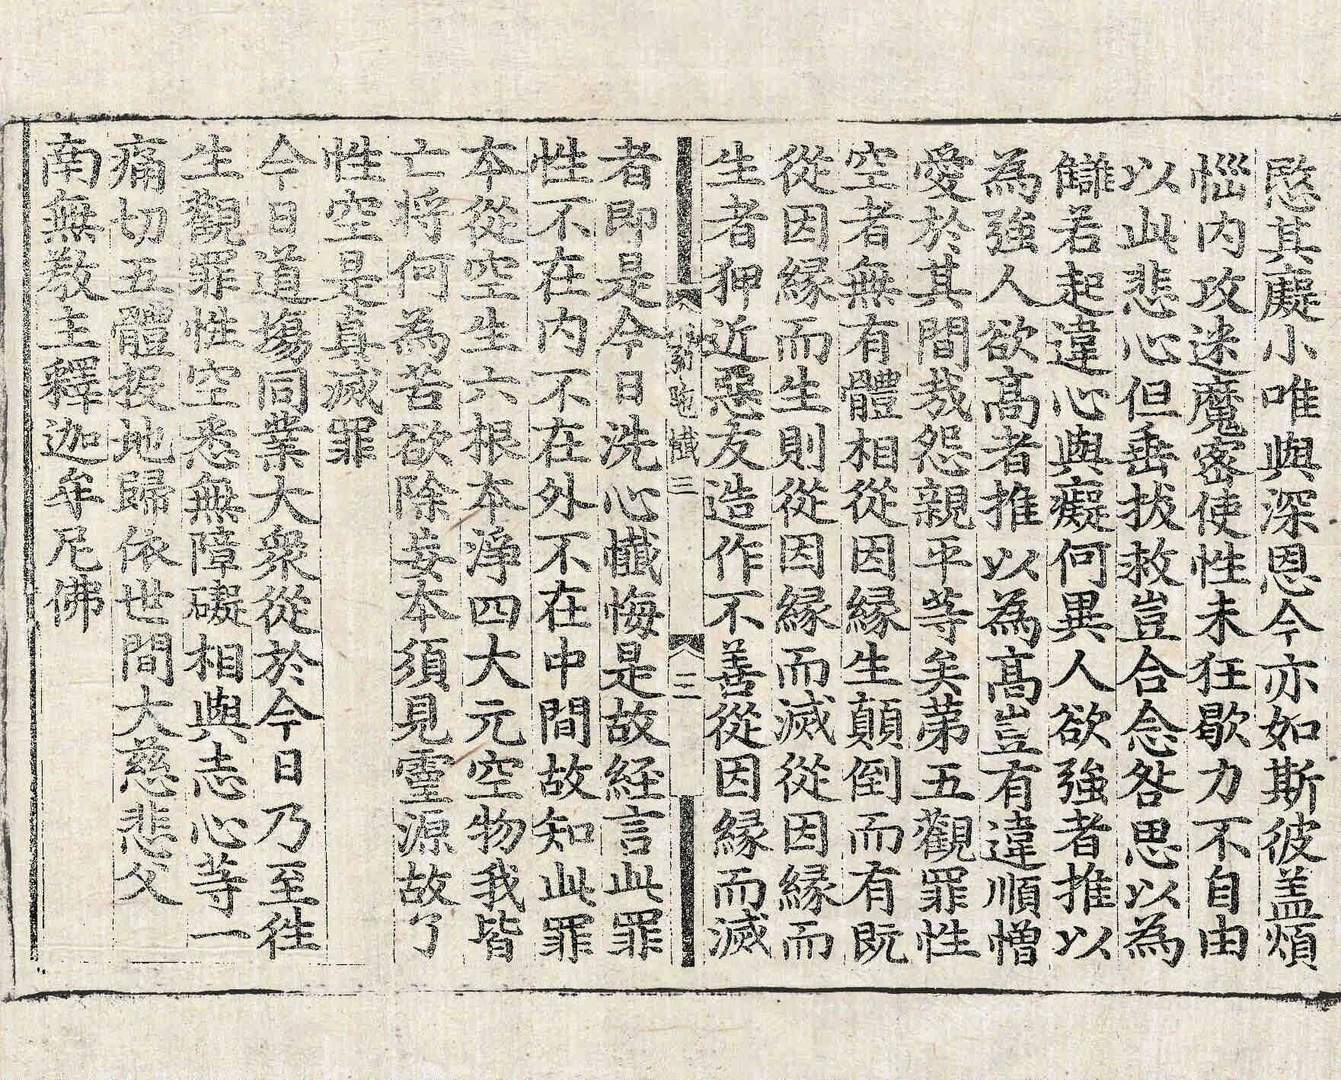 愍其癡小唯與深恩今亦如斯彼盖煩
惱内攻迷魔密使性未狂歇力不自由
以此悲心但垂拔救豈合念咎思以為
讎若起違心與癡何異人欲強者推以
為強人欲髙者推以為髙豈有違順憎
愛於其間㢤怨親平等矣苐五觀罪性
空者無有體相從因縁生顛倒而有既
從因縁而生則從因縁而滅從因縁而
生者狎近惡友造作不善從因縁而滅
懺三
三
者即是今日洗心懺悔是故経言此罪
性不在内不在外不在中間故知此罪
本從空生六根本淨四大元空物我皆
亡将何為苦欲除妄本須見霊源故了
性空是真滅罪
今日道塲同業大衆從於今日乃至徃
生觀罪性空悉無障礙相與志心等一
痛切五體投地歸依世間大慈悲父
南無教主釋迦牟尼佛